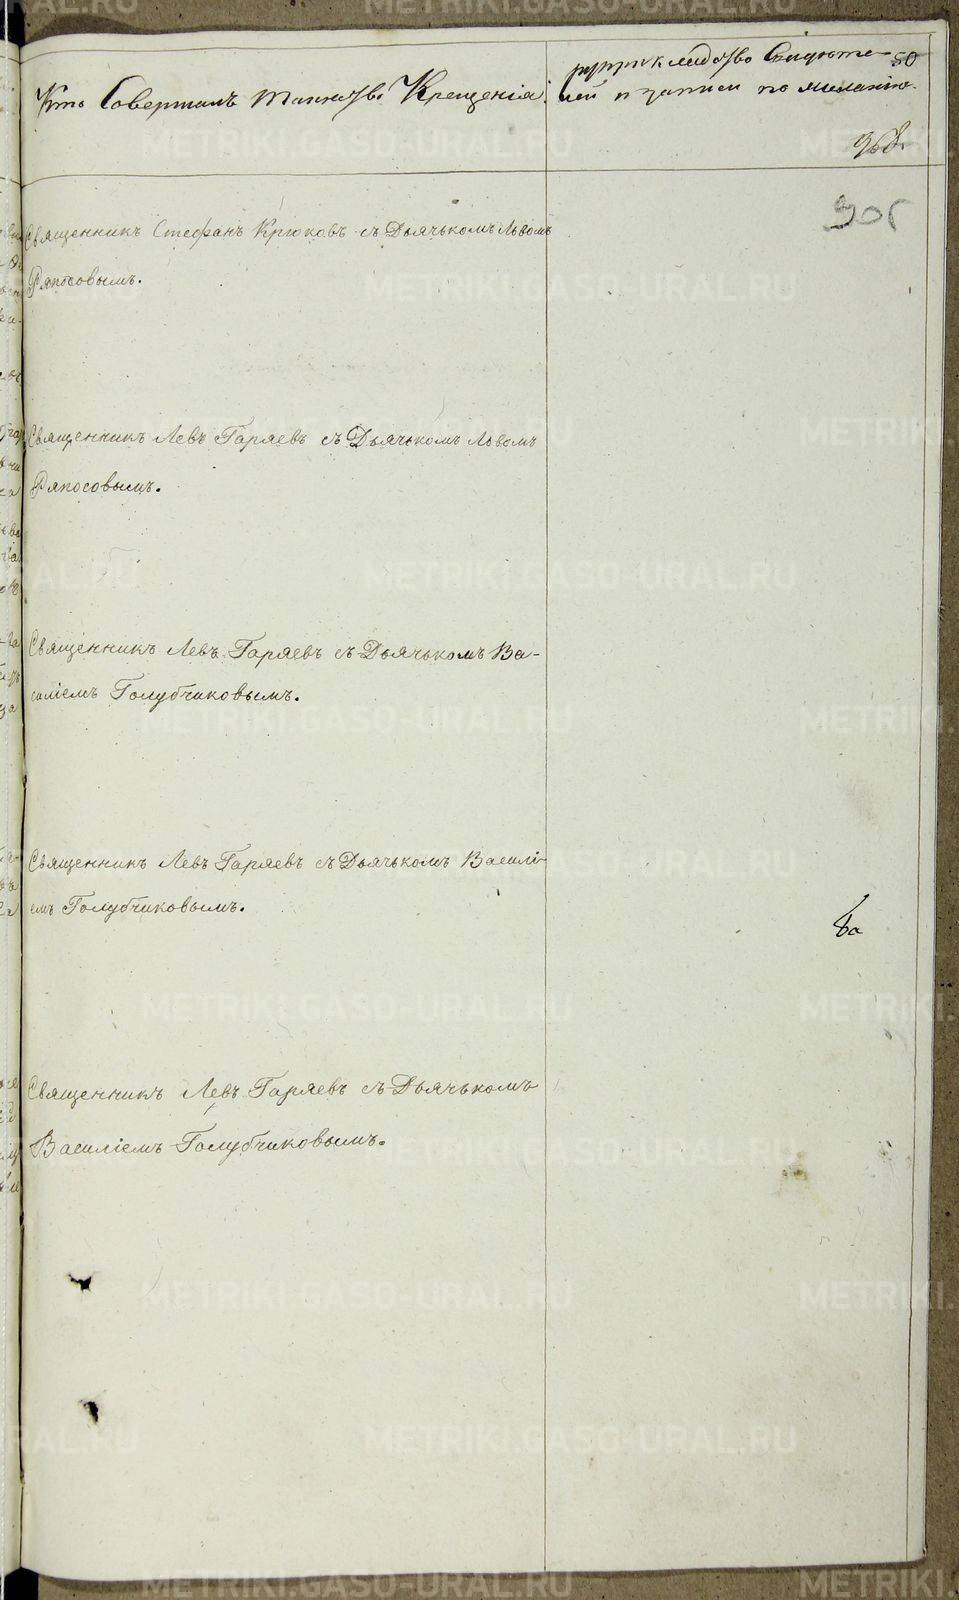 Кто Совершалъ таинство Крещенія.
рукоприкладство Свидѣте-
лей о записи по желанію.
50
905
Священникъ Стефанъ Крюковъ съ Дьячькомъ Львомъ
Ряпосовымъ.
Священникъ Левъ Гаряевъ съ Дьячькомъ Львомъ
Ряпосовымъ.
Священникъ Левъ Гаряевъ съ Дьячькомъ Ва-
силіемъ Голубчиковымъ.
Священникъ Левъ Гаряевъ съ Дьячькомъ Василі-
емъ Голубчиковымъ.
Священникъ Левъ Гаряевъ съ Дьячькомъ
Василіемъ Голубчиковымъ.
METRIKI.GASO-URAL.RU